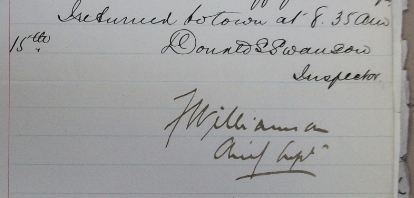 I returned to town at 8.35am
15th Donald S Swanson
Inspector
J Williamson
Chief Supt